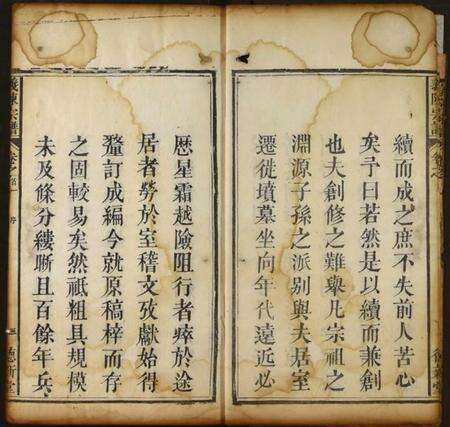 續而成之庶不失前人苦心
矣予曰若然是以續而兼創
也夫創修之難舉凡宗祖之
淵源子孫之派别與夫居室
遷徙墳墓坐向年代遠近必
歷星霜越險阻行者瘁於途
居者勞於室稽文攷獻始得
釐訂成編今就原稿梓而存
之固較易矣然祇粗具規模
未及條分縷晣且百餘年兵
義陳宗譜